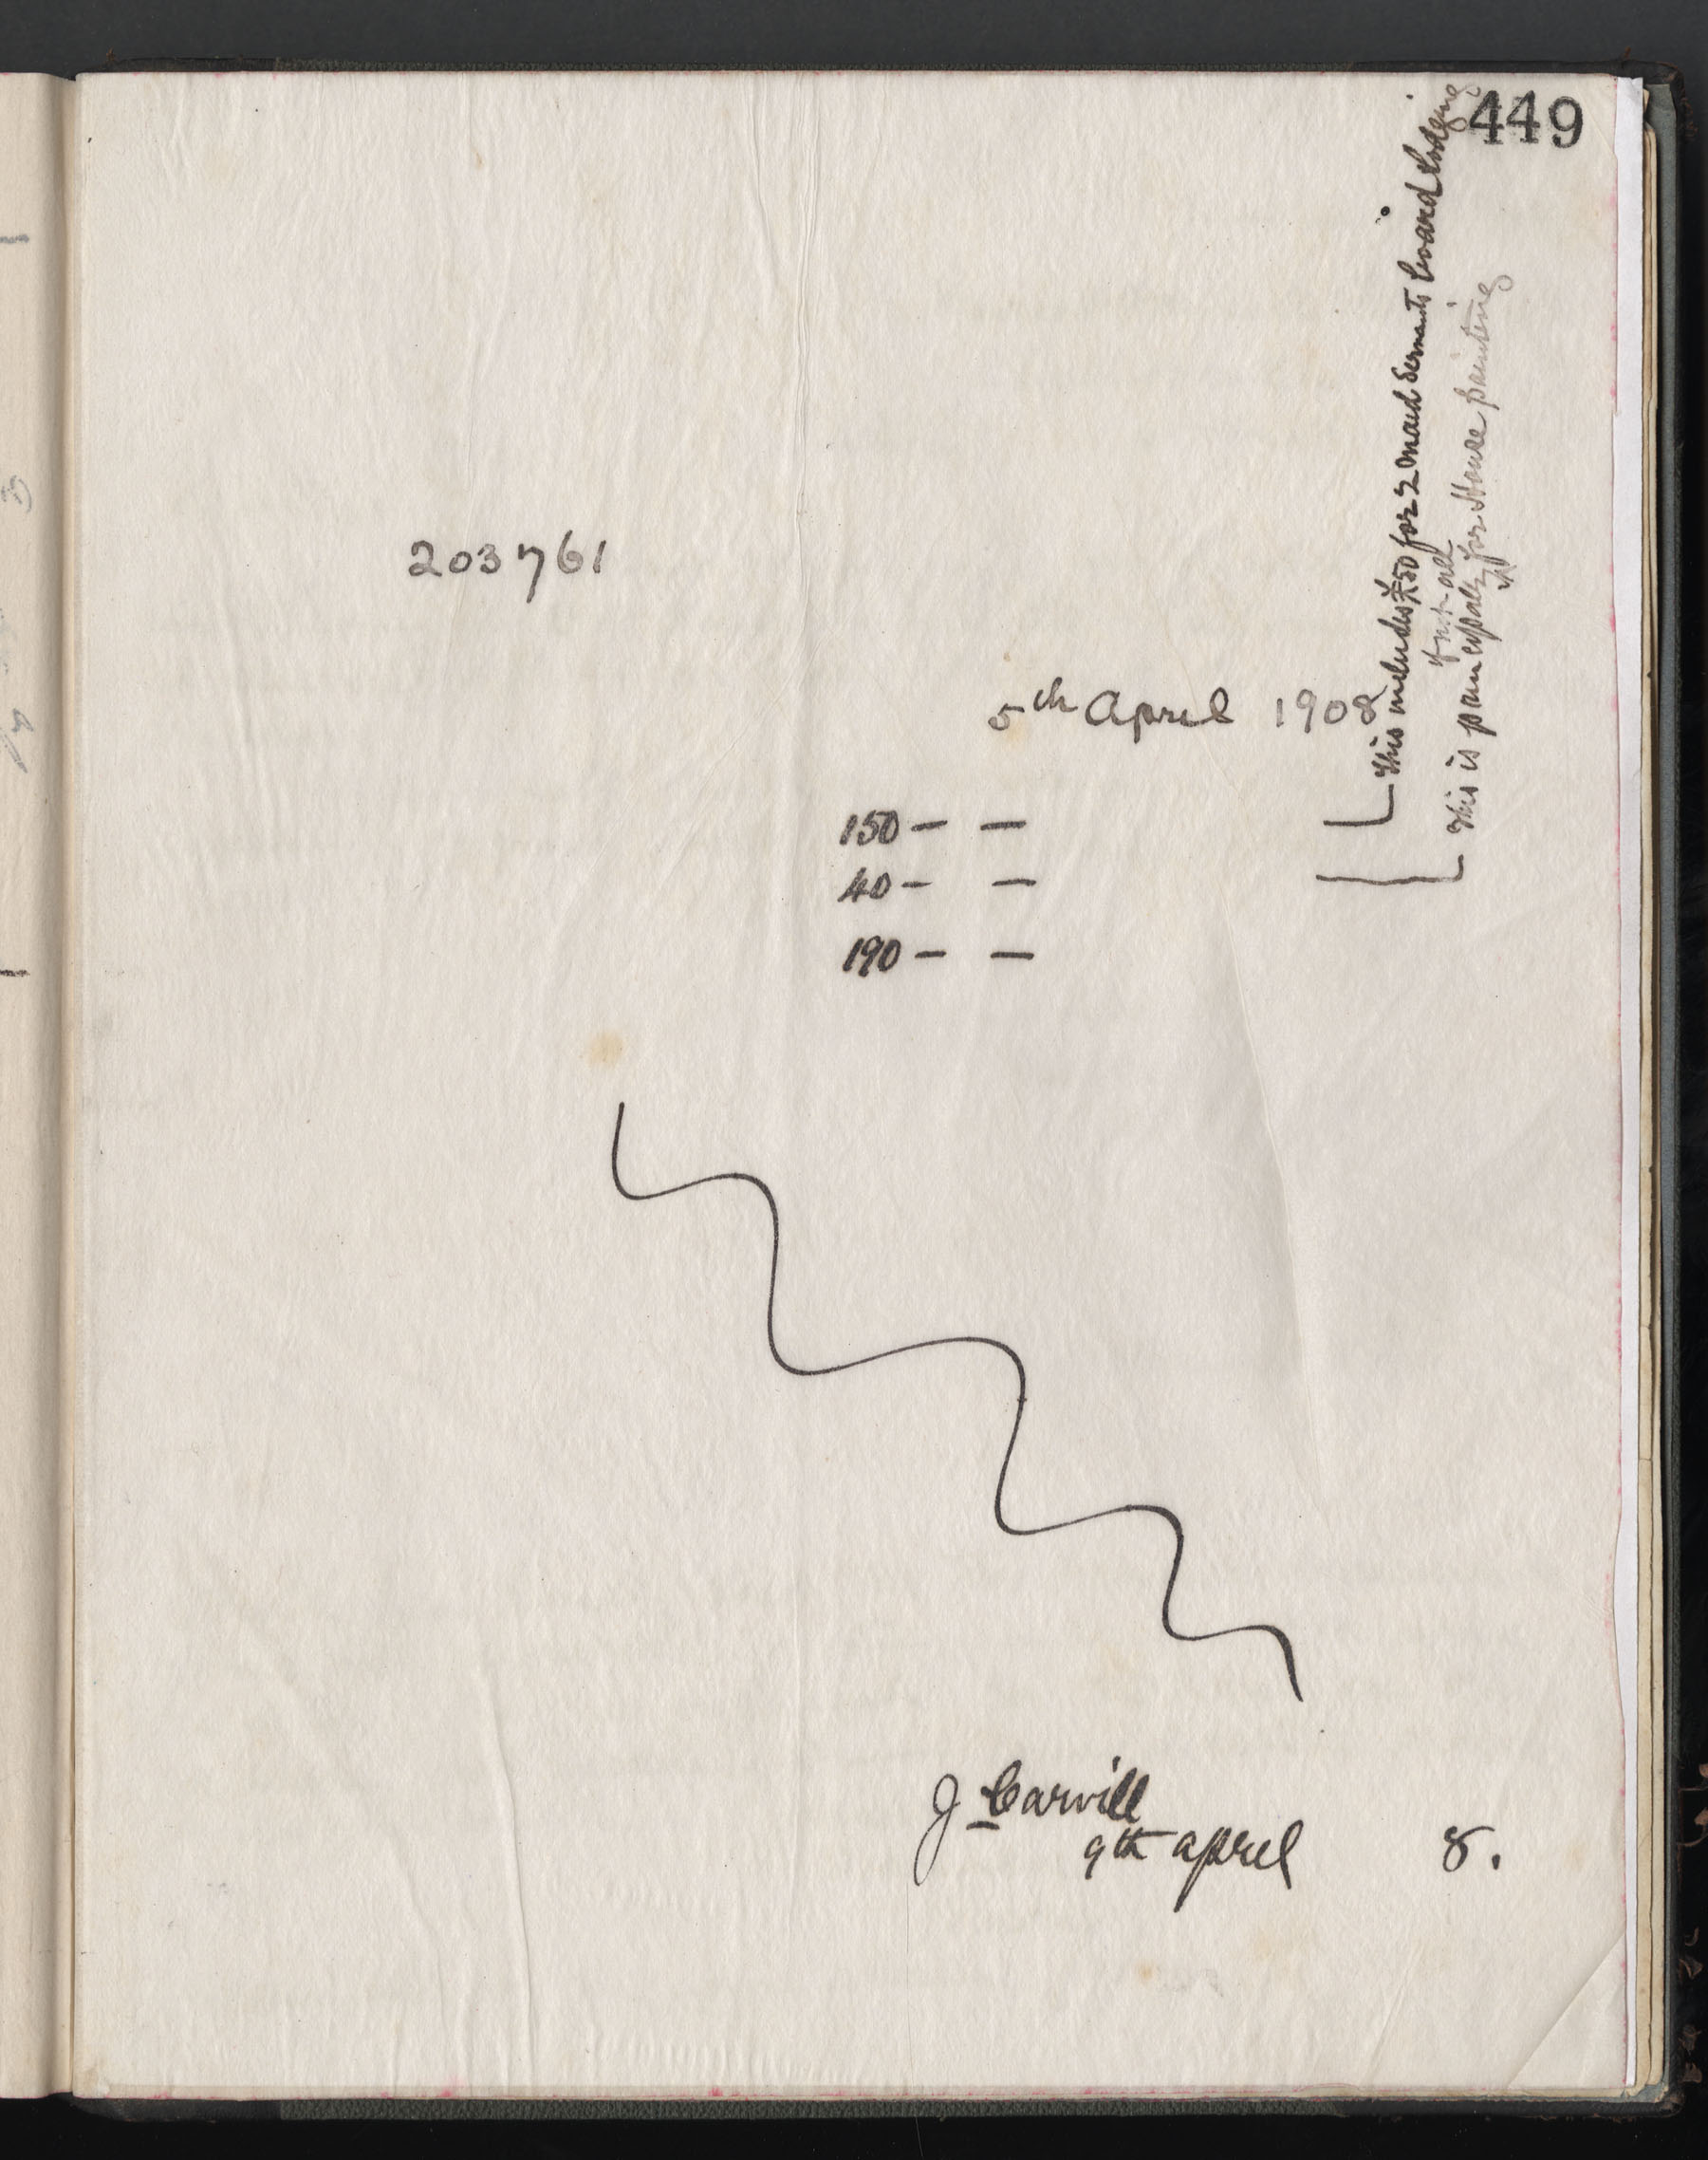 449
This includes £50 for 2 maid servants board lodging
if not all
This is principally for House painting
203761
5th April 1908
150 — —
40 — —
190 — —
J Carvill
9th April 8.